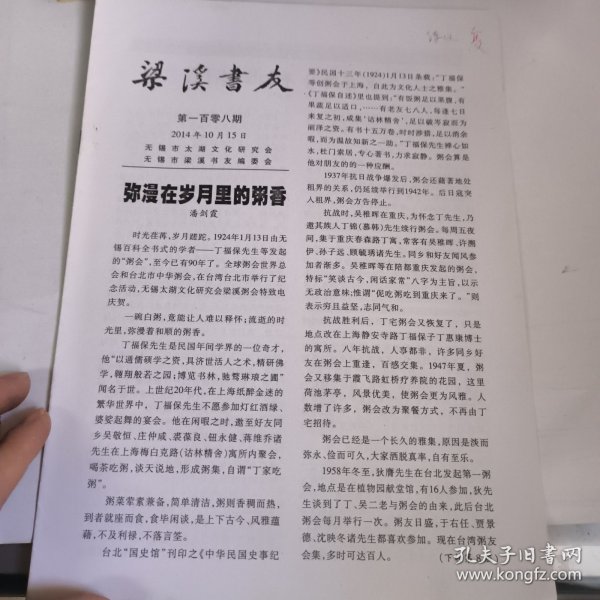 梁溪書友
第一百零八期
2014年10月15日
无锡市太湖文化研究会
无锡市梁溪书友编委会
弥漫在岁月里的粥香
潘剑霞
时光荏苒，岁月蹉跎。1924年1月13日由无
锡百科全书式的学者——丁福保先生等发起
的“粥会”，至今已有90年了。全球粥会世界总
会和台北市中华粥会，在台湾台北市举行了纪
念活动，无锡太湖文化研究会梁溪粥会特致电
庆贺。
一碗白粥，竟能让人难以释怀；流逝的时
光里，弥漫着和顺的粥香。
丁福保先生是民国年间学界的一位奇才，
他“以通儒硕学之资，具济世活人之术，精研佛
学，翱翔般若之园；博览书林，驰骛琳琅之圃”
闻名于世。上世纪20年代，在上海纸醉金迷的
繁华世界中，丁福保先生不愿参加灯红酒绿、
婆娑起舞的宴会。他在闲暇之时，邀至好友同
乡吴敬恒、庄仲咸、裘葆良、钮永健、蒋维乔诸
先生在上海梅白克路（诂林精舍）寓所内聚会，
喝茶吃粥，谈天说地，形成粥集，自谓“丁家吃
粥”。
粥菜荤素兼备，简单清洁，粥则香稠而热，
到者就座而食，食毕闲谈，是上下古今、风雅蕴
藉，不及利禄，不落言筌。
台北“国史馆”刊印之《中华民国史事纪
要》民国十三年（1924）1月13日条载：“丁福保
等创粥会于上海，自此为文化人士之雅集。”
《丁福保自述》里也提到：“有饭粥足以果腹，有
果蔬足以适口，……有老友七八人，每逢七日
来复之初，咸集‘诂林精舍’，足以破岑寂而为
丽泽之资。有书十五万卷，时时涉猎，足以消余
暇，而为温故知新之一助。”丁福保先生禅心如
水，杜门索居，专心著书，力求寂静。粥会算是
他对朋友的的一种应酬。
1937年抗日战争爆发后，粥会还藉著地处
租界的关系，仍延续举行到1942年。后日寇突
入租界，粥会方告停止。
抗战时，吴稚晖在重庆，为怀念丁先生，乃
邀其族人丁锦（慕韩）先生续行粥会。每周五夜
间，集于重庆春森路丁寓，常客有吴稚晖、许溯
伊、孙子远、顾毓琇诸先生。同乡和好友闻风参
加者渐多。吴稚晖等在陪都重庆发起的粥会，
特标“笑谈古今，闲话家常”八字为主旨，以示
无政治意味；惟谓“促吃粥吃到重庆来了。”则
表示穷且益坚，志同气和。
抗战胜利后，丁宅粥会又恢复了，只是
地点改在上海静安寺路丁福保子丁惠康博士
的寓所。八年抗战，人事都非，许多同乡好
友在粥会上重逢，百感交集。1947年夏，粥
会又移集于霞飞路虹桥疗养院的花园，这里
荷池茅亭，风景优美，使粥会更为风雅。人
数增了许多，粥会改为聚餐方式，不再由丁
宅招待。
粥会已经是一个长久的雅集，原因是淡而
弥永、俭而可久，大家洒脱真率，自有至乐。
1958年冬至，狄膺先生在台北发起第一粥
会，地点是在植物园献堂馆，有16人参加，狄先
生谈到了丁、吴二老与粥会的由来，此后台北
粥会每月举行一次。粥友日盛，于右任、贾景
德、沈映冬诸先生都喜欢参加。现在台湾粥友
会集，多时可达百人。
孔夫子旧书网
www.kongfz.com